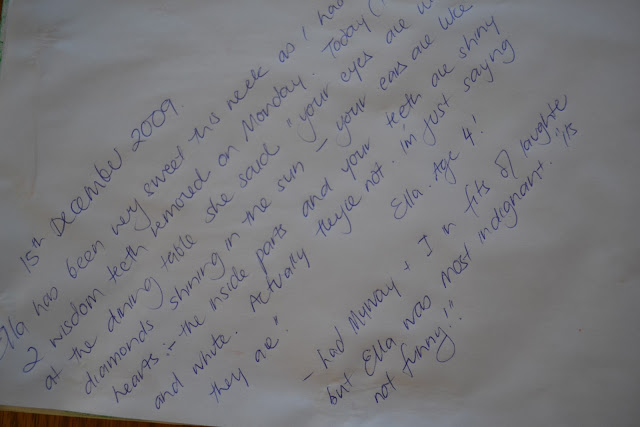 15th December 2009.
Ella has been very sweet this week as I had
2 wisdom teeth removed on Monday. Today (
at the dining table she said "your eyes are
diamonds shining in the sun - your ears are like
hearts :- the inside parts and your teeth are shiny
and white. Actually they're not. i'm just saying
they are". Ella. Age 4!
- had Murray + I in fits of laughte
but Ella was most indignant. "it's
not funny!!"